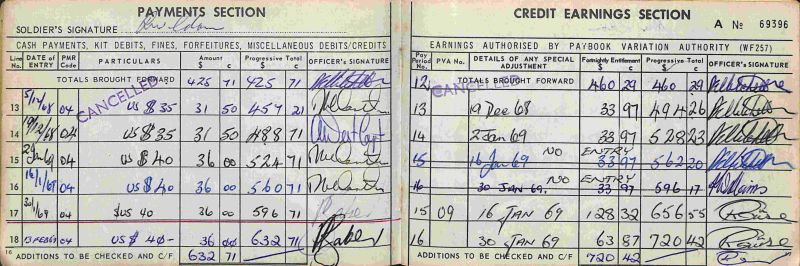 PAYMENTS SECTION
SOLDIER'S SIGNATURE
CASH PAYMENTS, KIT DEBITS, FINES, FORFEITURES, MISCELLANEOUS DEBITS/CREDITS
Line No. DATE of ENTRY PMR PARTICULARS Amount $ c Progressive Total $ c OFFICER'S SIGNATURE
TOTALS BROUGHT FORWARD 425 71 425 71
CANCELLED
13 5/12/68 04 US $ 35 31 50 457 21
14 19/12/68 04 US $ 35 31 50 488 71
15 04 US $ 40 36 00 524 71
16 16/1/69 04 US $ 40 36 00 560 71
17 30/1/69 04 $US 40 36 00 596 71
18 13 FEB 69 04 US $ 40- 36 00 632 71
16 ADDITIONS TO BE CHECKED AND C/F 632 71
CREDIT EARNINGS SECTION
A No 69396
EARNINGS AUTHORISED BY PAYBOOK VARIATION AUTHORITY (WF257)
Pay Period No. PVA No. DETAILS OF ANY SPECIAL ADJUSTMENT Fortnightly Entitlement $ c Progressive Total $ c OFFICER'S SIGNATURE
12 TOTALS BROUGHT FORWARD 460 29 460 29
CANCELLED
13 19 Dec 68 33 97 494 26
14 2 Jan 69 33 97 528 23
NO ENTRY
15 16 Jan 69 33 97 562 20
NO ENTRY
16 30 JAN 69. 33 97 596 17
15 09 16 JAN 69 128 32 656 55
16 30 JAN 69 63 87 720 42
ADDITIONS TO BE CHECKED AND C/F 720 42